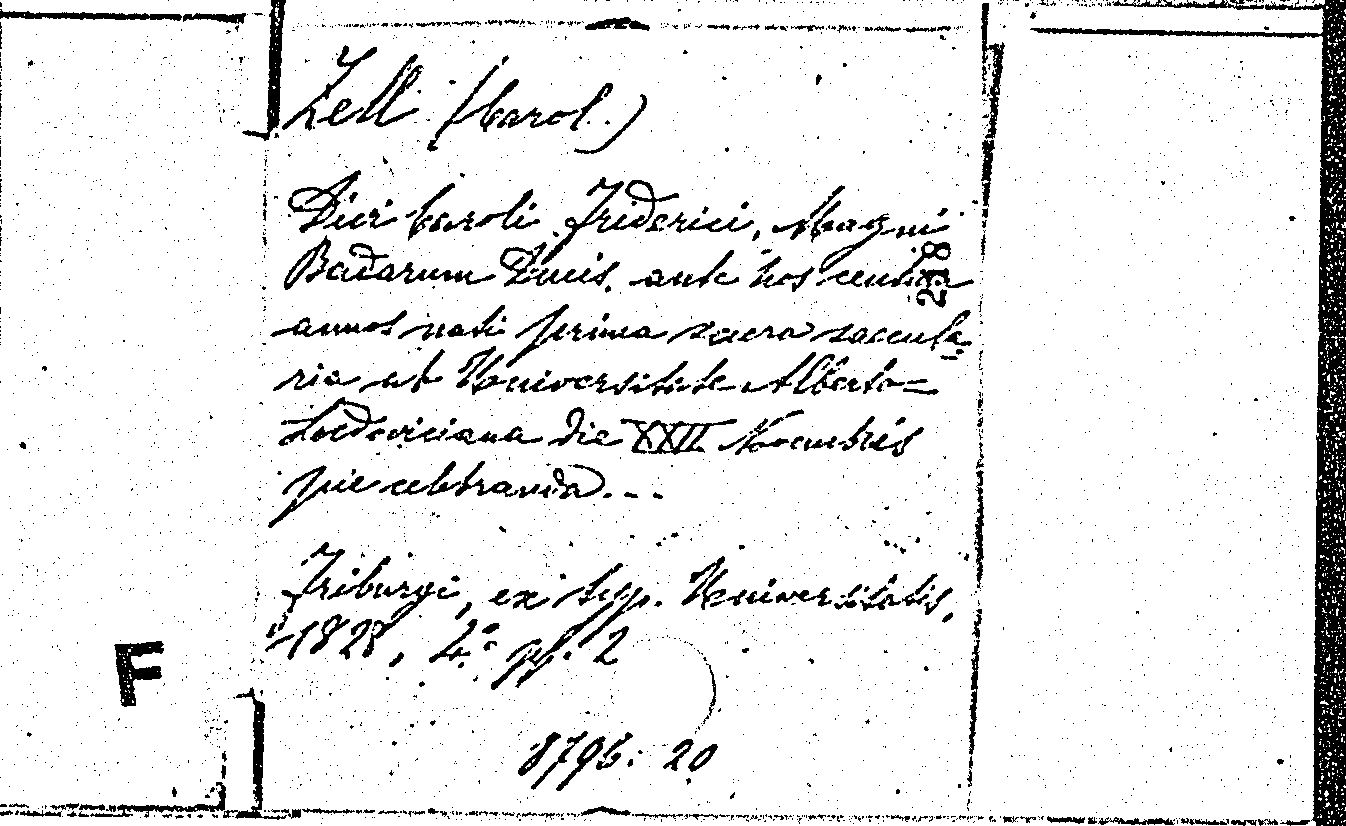 Zell (Carol.)
Divi Caroli Friderici, Magni
Badarum Ducis, ante hos centum
218
annos nati prima sacra saecula-
ria ab Universitate Alberto=
Ludoviciana die XXII Novembris
pie celebranda...
Friburgi, ex typ. Universitatis,
1828, 4.° pp. 2
F
8795: 20